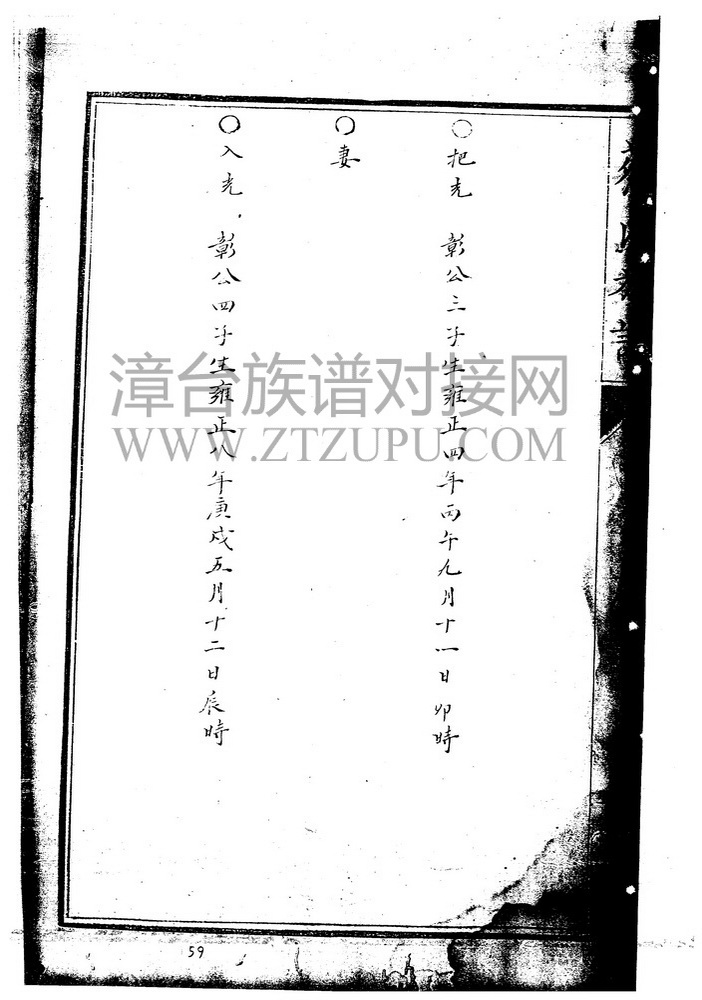 ○把光 彰公三子生雍正四年丙午九月十一日卯時
○妻
○入光 彰公四子生雍正八年庚戍五月十二日辰時
漳台族谱对接网
WWW.ZTZUPU.COM
59